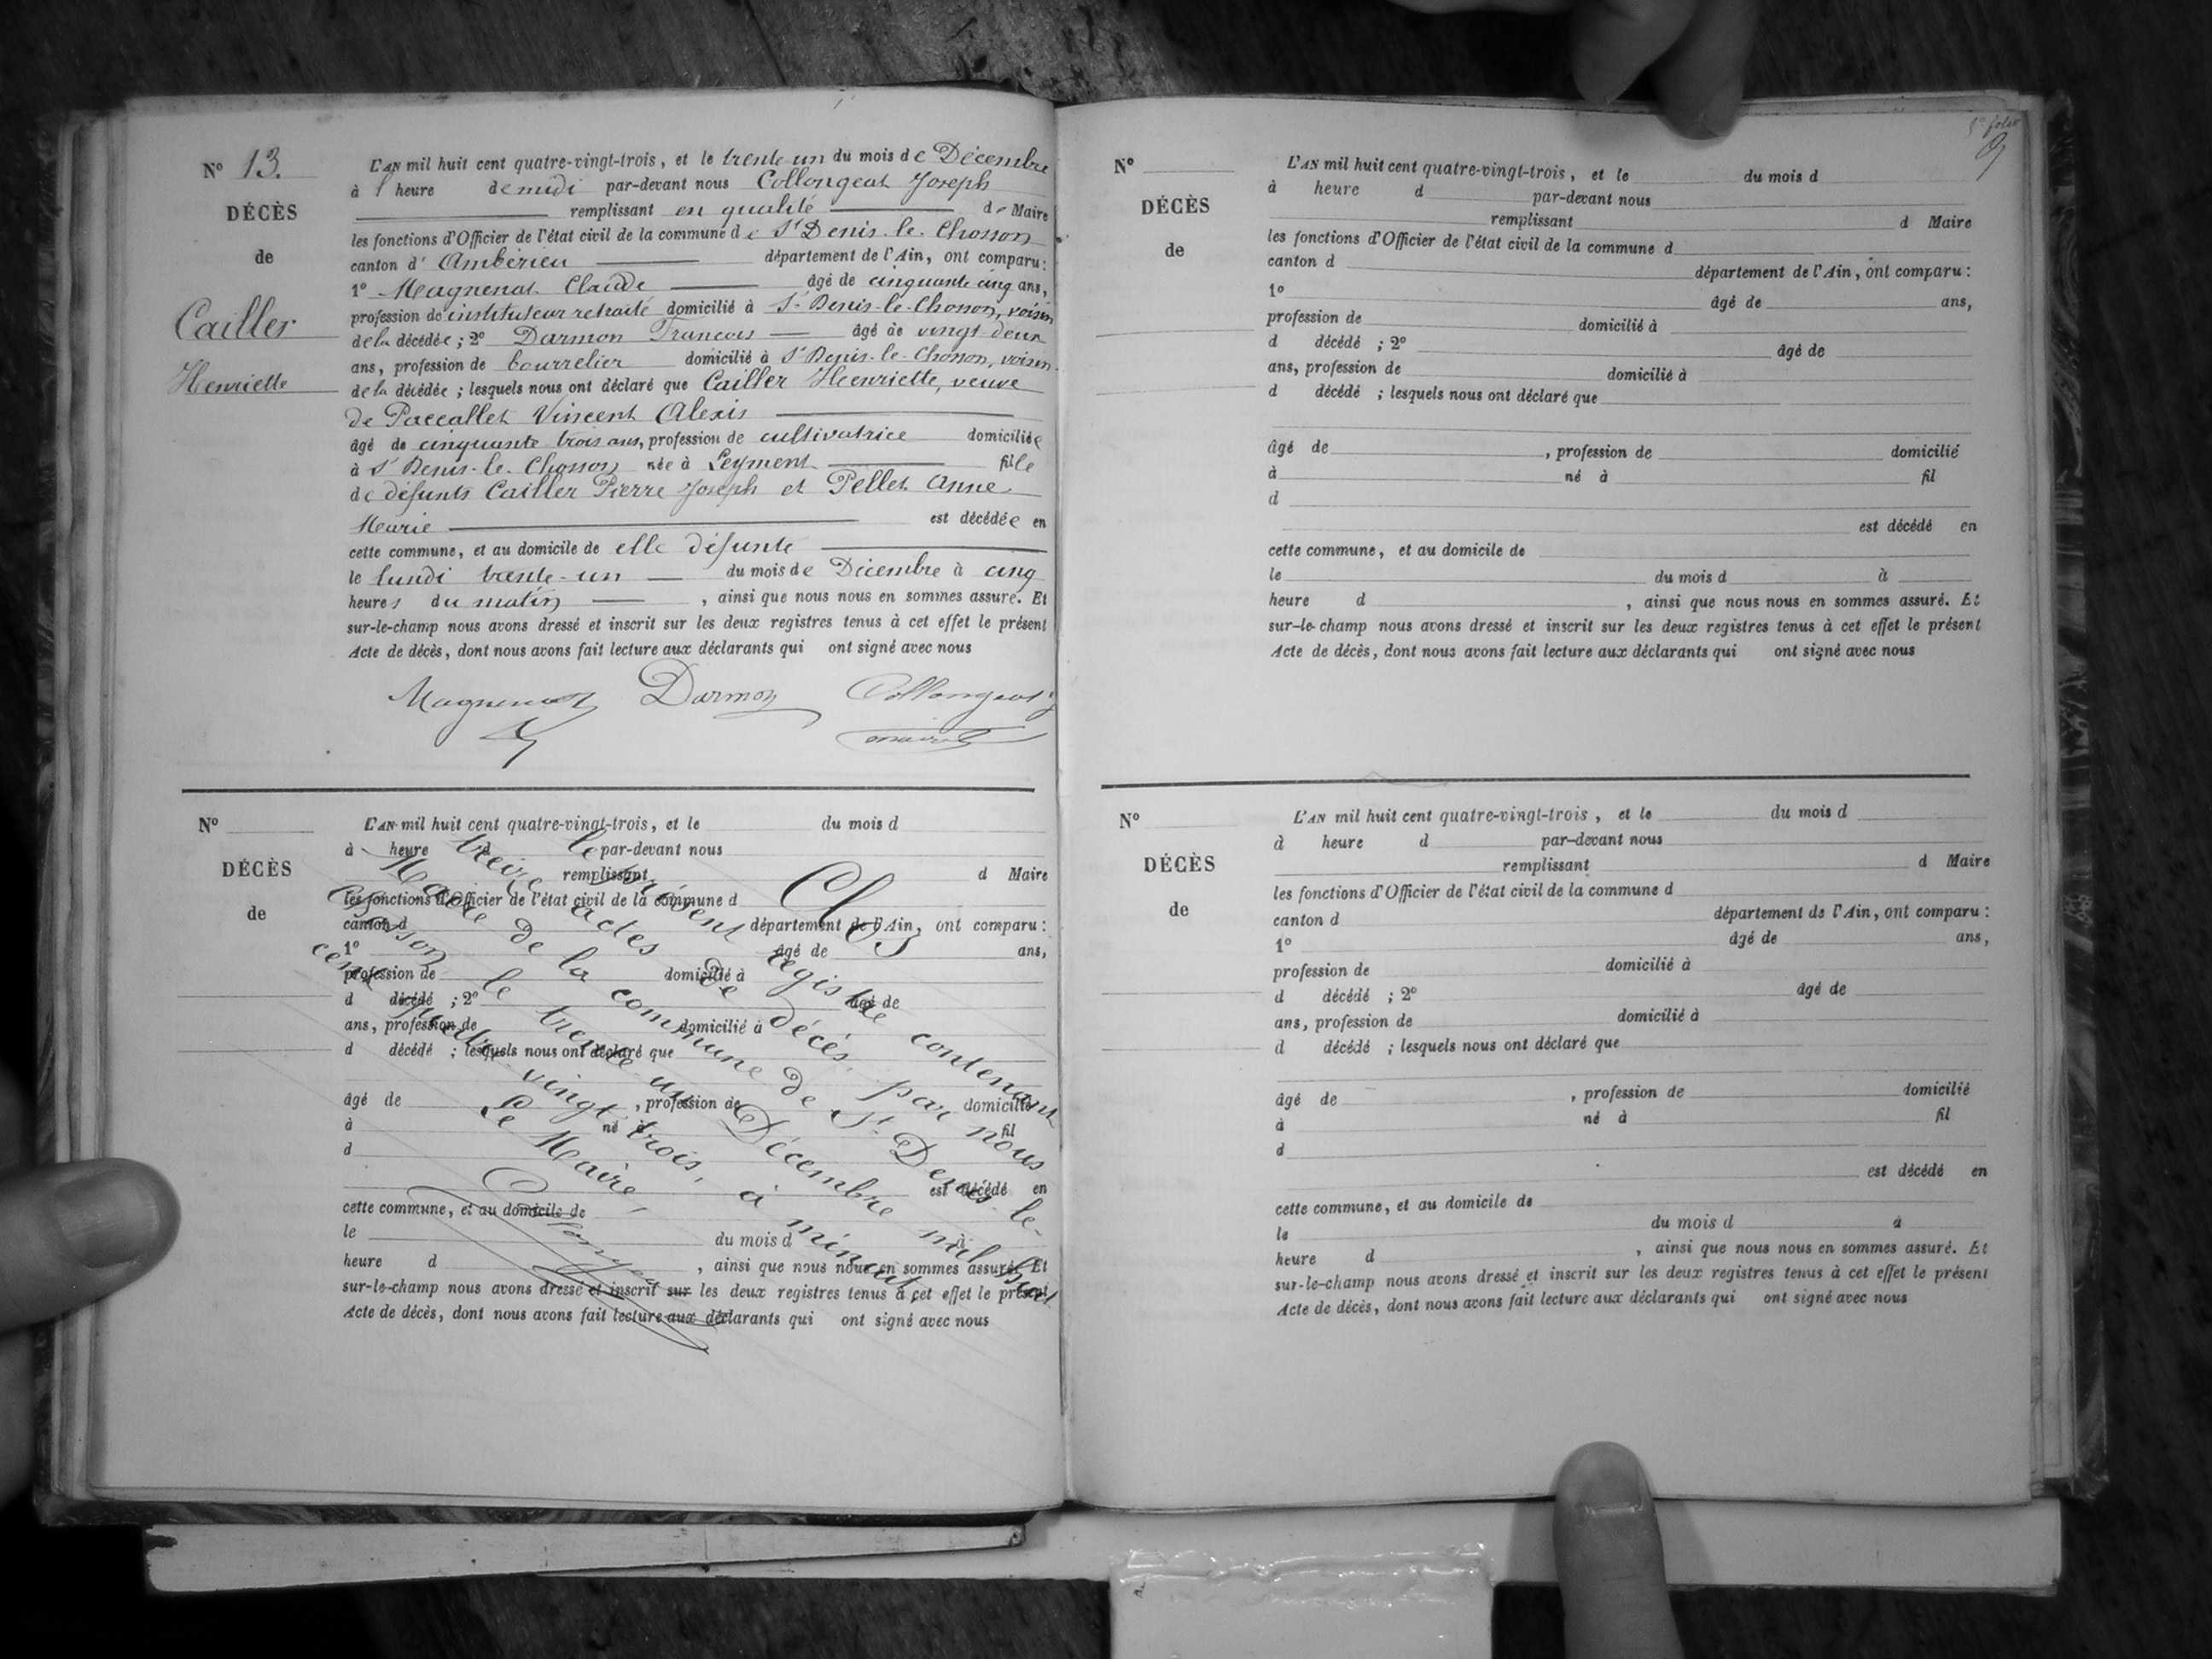 N° 13.
DÉCÈS
de
Cailler
Henriette
L'AN mil huit cent quatre-vingt-trois, et le trente un du mois de Décembre
à 1 heure de midi par-devant nous Collongeat Joseph
remplissant en qualité de Maire
les fonctions d'Officier de l'état civil de la commune de St Denis-le-Chosson
canton d'Ambérieu département de l'Ain, ont comparu :
1° Magnenat Claude âgé de cinquante cinq ans,
profession de instituteur retraité domicilié à St Denis-le-Chosson, voisin
de la décédée ; 2° Darmon Francois âgé de vingt-deux
ans, profession de bourrelier domicilié à St Denis-le-Chosson, voisin
de la décédée ; lesquels nous ont déclaré que Cailler Henriette, veuve
de Paccallet Vincent Alexis
âgé de cinquante trois ans, profession de cultivatrice domiciliée
à St Denis-le-Chosson née à Leyment fille
de défunts Cailler Pierre Joseph et Pellet Anne
Marie est décédée en
cette commune, et au domicile de elle défunte
le lundi trente-un du mois de Décembre à cinq
heures du matin, ainsi que nous nous en sommes assuré. Et
sur-le-champ nous avons dressé et inscrit sur les deux registres tenus à cet effet le présent
Acte de décès, dont nous avons fait lecture aux déclarants qui ont signé avec nous
Magnenat Darmon Collongeat
maire
N°
DÉCÈS
de
L'AN mil huit cent quatre-vingt-trois, et le du mois d
à heure d par-devant nous
remplissant d Maire
les fonctions d'Officier de l'état civil de la commune d
canton d département de l'Ain, ont comparu :
1° âgé de ans,
profession de domicilié à
d décédé ; 2° âgé de
ans, profession de domicilié à
d décédé ; lesquels nous ont déclaré que
âgé de , profession de domicilié
à né à fil
d
est décédé en
cette commune, et au domicile de
le du mois d à
heure d , ainsi que nous nous en sommes assuré. Et
sur-le-champ nous avons dressé et inscrit sur les deux registres tenus à cet effet le présent
Acte de décès, dont nous avons fait lecture aux déclarants qui ont signé avec nous
Clos
le présent registre contenant
treize actes de décès par nous
Maire de la commune de St Denis-le-
Chosson le trente un Décembre mil huit
cent quatre-vingt trois, à minuit.
Le Maire,
Collongeat
9
N°
DÉCÈS
de
L'AN mil huit cent quatre-vingt-trois, et le du mois d
à heure d par-devant nous
remplissant d Maire
les fonctions d'Officier de l'état civil de la commune d
canton d département de l'Ain, ont comparu :
1° âgé de ans,
profession de domicilié à
d décédé ; 2° âgé de
ans, profession de domicilié à
d décédé ; lesquels nous ont déclaré que
âgé de , profession de domicilié
à né à fil
d
est décédé en
cette commune, et au domicile de
le du mois d à
heure d , ainsi que nous nous en sommes assuré. Et
sur-le-champ nous avons dressé et inscrit sur les deux registres tenus à cet effet le présent
Acte de décès, dont nous avons fait lecture aux déclarants qui ont signé avec nous
N°
DÉCÈS
de
L'AN mil huit cent quatre-vingt-trois, et le du mois d
à heure d par-devant nous
remplissant d Maire
les fonctions d'Officier de l'état civil de la commune d
canton d département de l'Ain, ont comparu :
1° âgé de ans,
profession de domicilié à
d décédé ; 2° âgé de
ans, profession de domicilié à
d décédé ; lesquels nous ont déclaré que
âgé de , profession de domicilié
à né à fil
d
est décédé en
cette commune, et au domicile de
le du mois d à
heure d , ainsi que nous nous en sommes assuré. Et
sur-le-champ nous avons dressé et inscrit sur les deux registres tenus à cet effet le présent
Acte de décès, dont nous avons fait lecture aux déclarants qui ont signé avec nous